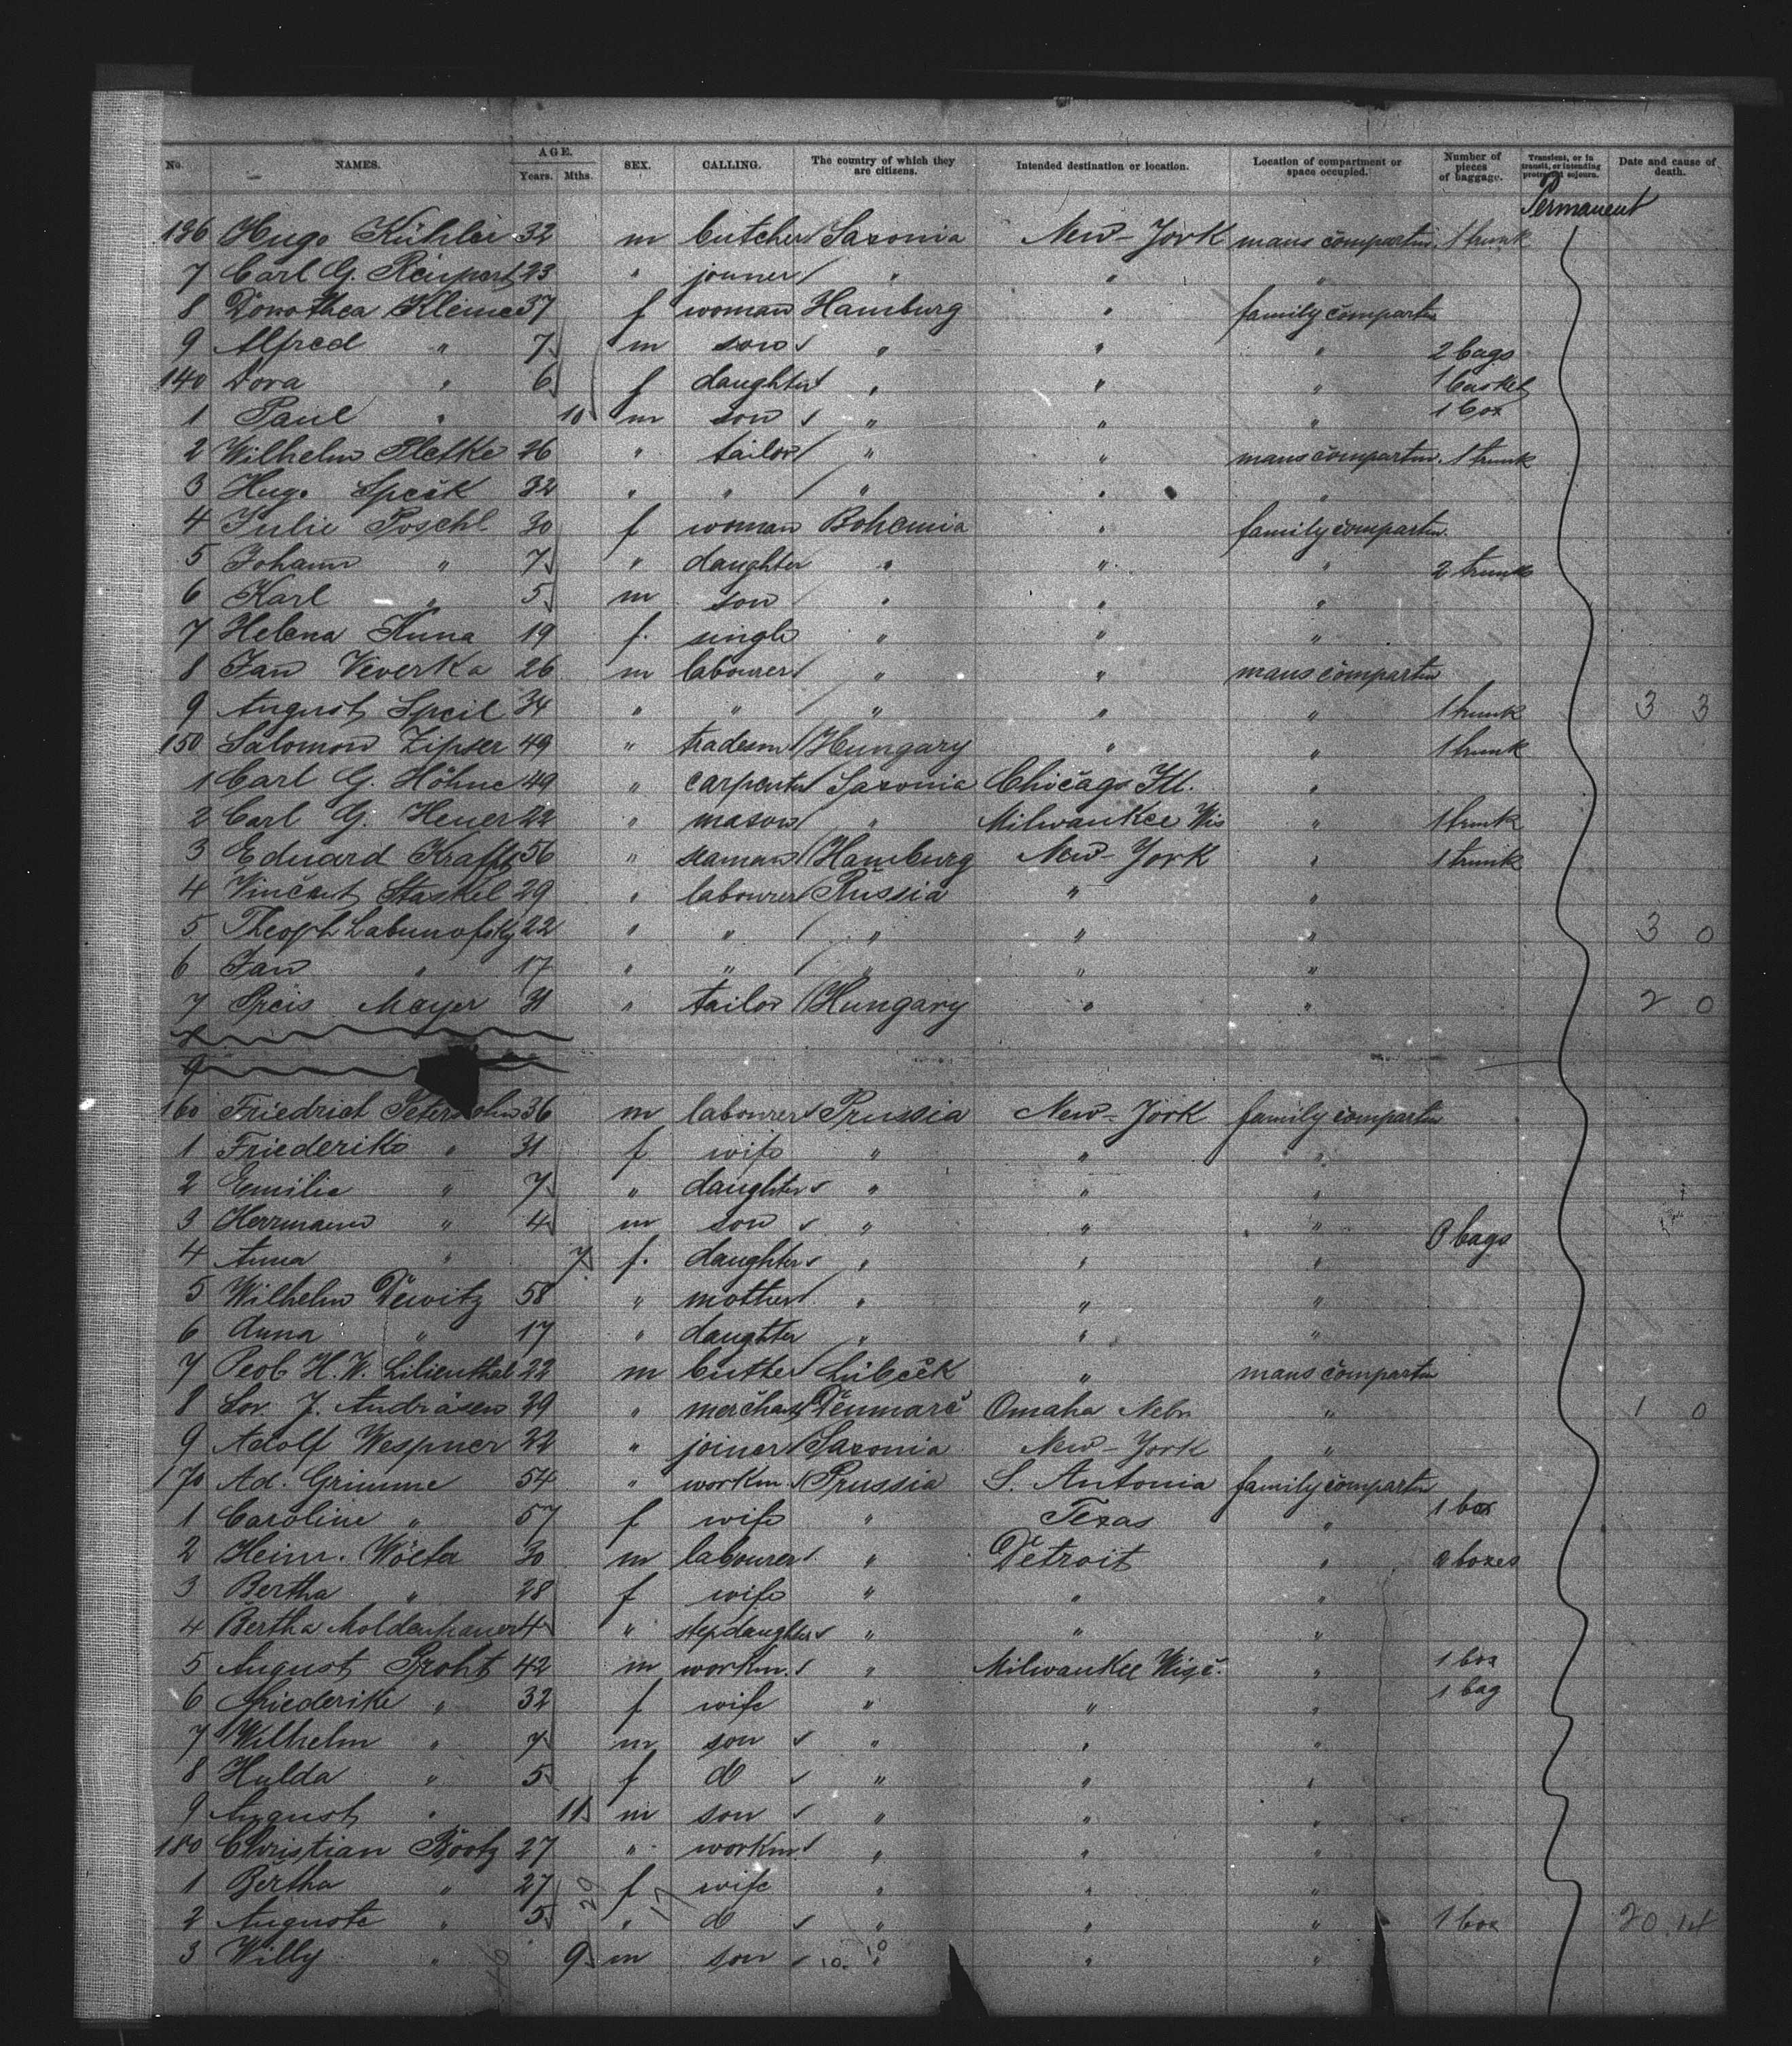 No. NAMES. AGE. Years. Mths. SEX. CALLING. The country of which they are citizens. Intended destination or location. Location of compartment or space occupied. Number of pieces of baggage. Transient, or in transit, or intending protracted sojourn. Date and cause of death.
Permanent
136 Hugo Kühler 32 m butcher Saxonia New-York mans compartm. 1 trunk
7 Carl G. 23 " joiner " " "
8 Dorothea Kleine 37 f woman Hamburg " family compartm
9 Alfred " 7 m son " " " 2 bags
140 Dora " 6 f daughter " " " 1 basket
1 Paul " 10 m son " " " 1 box
2 Wilhelm Pletke 26 " tailor " " mans compartm. 1 trunk
3 Hugo Speck 32 " " " " "
4 Julie Poschl 30 f woman Bohemia " family compartm.
5 Johann " 7 " daughter " " " 2 trunks
6 Karl " 5 m son " " "
7 Helena Kuna 19 f. single " " "
8 Jan Veverka 26 m labourer " " mans compartm
9 August Speil 34 " " " " " 1 trunk 3 3
150 Salomon Zipser 49 " tradesm Hungary " " 1 trunk
1 Carl G. Höhne 49 " carpenter Saxonia Chicago Ill. "
2 Carl G. Heuer 22 " mason " Milwaukee Wis " 1 trunk
3 Eduard Krafft 56 " seaman Hamburg New-York " 1 trunk
4 Vincent Staskel 29 " labourer Russia " "
5 Theoph Labunofsky 22 " " " " " 3 0
6 Jan " 17 " " " " "
7 Speis Mayer 31 " tailor Hungary " " 2 0
8
9
160 Friedrich Petersohn 36 m labourer Prussia New-York family compartm
1 Friederike " 31 f wife " " "
2 Emilie " 7 " daughter " " "
3 Herrmann " 4 m son " " "
4 Anna " 7 f. daughter " " " 3 bags
5 Wilhelm Dewitz 58 " mother " " "
6 Anna " 17 " daughter " " "
7 H. W. Lilienthal 22 m Lübeck " mans compartm
8 Lor. J. Andräsen 29 " merchant Denmarc Omaha Nebr " 1 0
9 Adolf Wespner 22 " joiner Saxonia New-York "
170 Ad. Grimme 54 " workm. Prussia S. Antonia family compartm
1 Caroline " 57 f wife " Texas " 1 box
2 Heinr. Wölfer 30 m labourer " Detroit " boxes
3 Bertha " 28 f wife " " "
4 Bertha Moldenhauer 4 " stepdaughter " " "
5 August Groht 42 m workm. " Milwaukee Wisc. " 1 box
6 Friederike " 32 f wife " " " 1 bag
7 Wilhelm " 7 m son " " "
8 Hulda " 5 f d " " "
9 August " 11 m son " " "
180 Christian Bootz 27 " workm. " " "
1 Bertha " 27 f wife " " "
2 Auguste " 5 " d " " " 1 box 20.14
3 Willy " 9 m son 10. 10 " " "